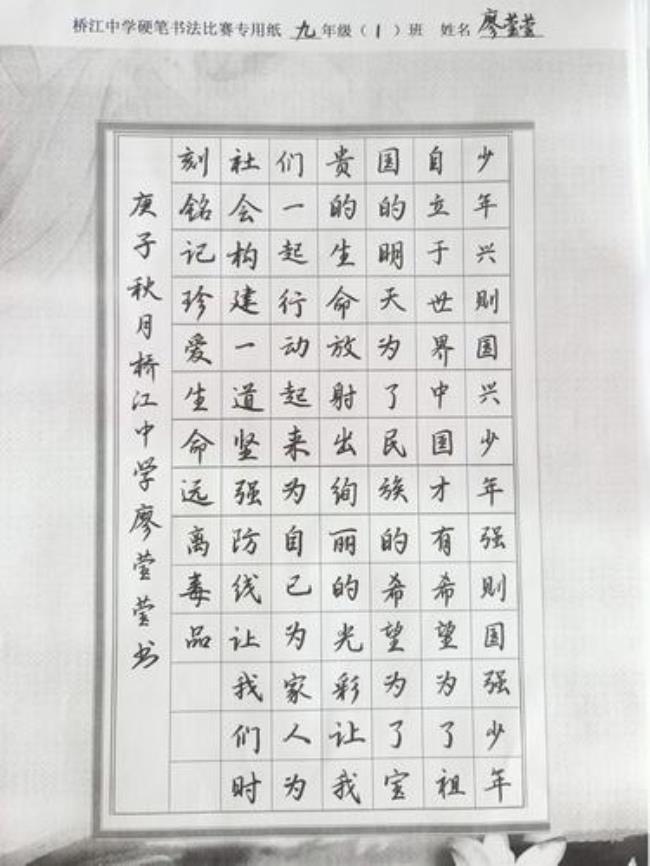 桥江中学硬笔书法比赛专用纸 九年级（1）班 姓名 廖萱萱
少年兴则国兴少年强则国强少年
自立于世界中国才有希望为了祖
国的明天为了民族的希望为了宝
贵的生命放射出绚丽的光彩让我
们一起行动起来为自己为家人为
社会构建一道坚强防线让我们时
刻铭记珍爱生命远离毒品
庚子秋月桥江中学廖萱萱书